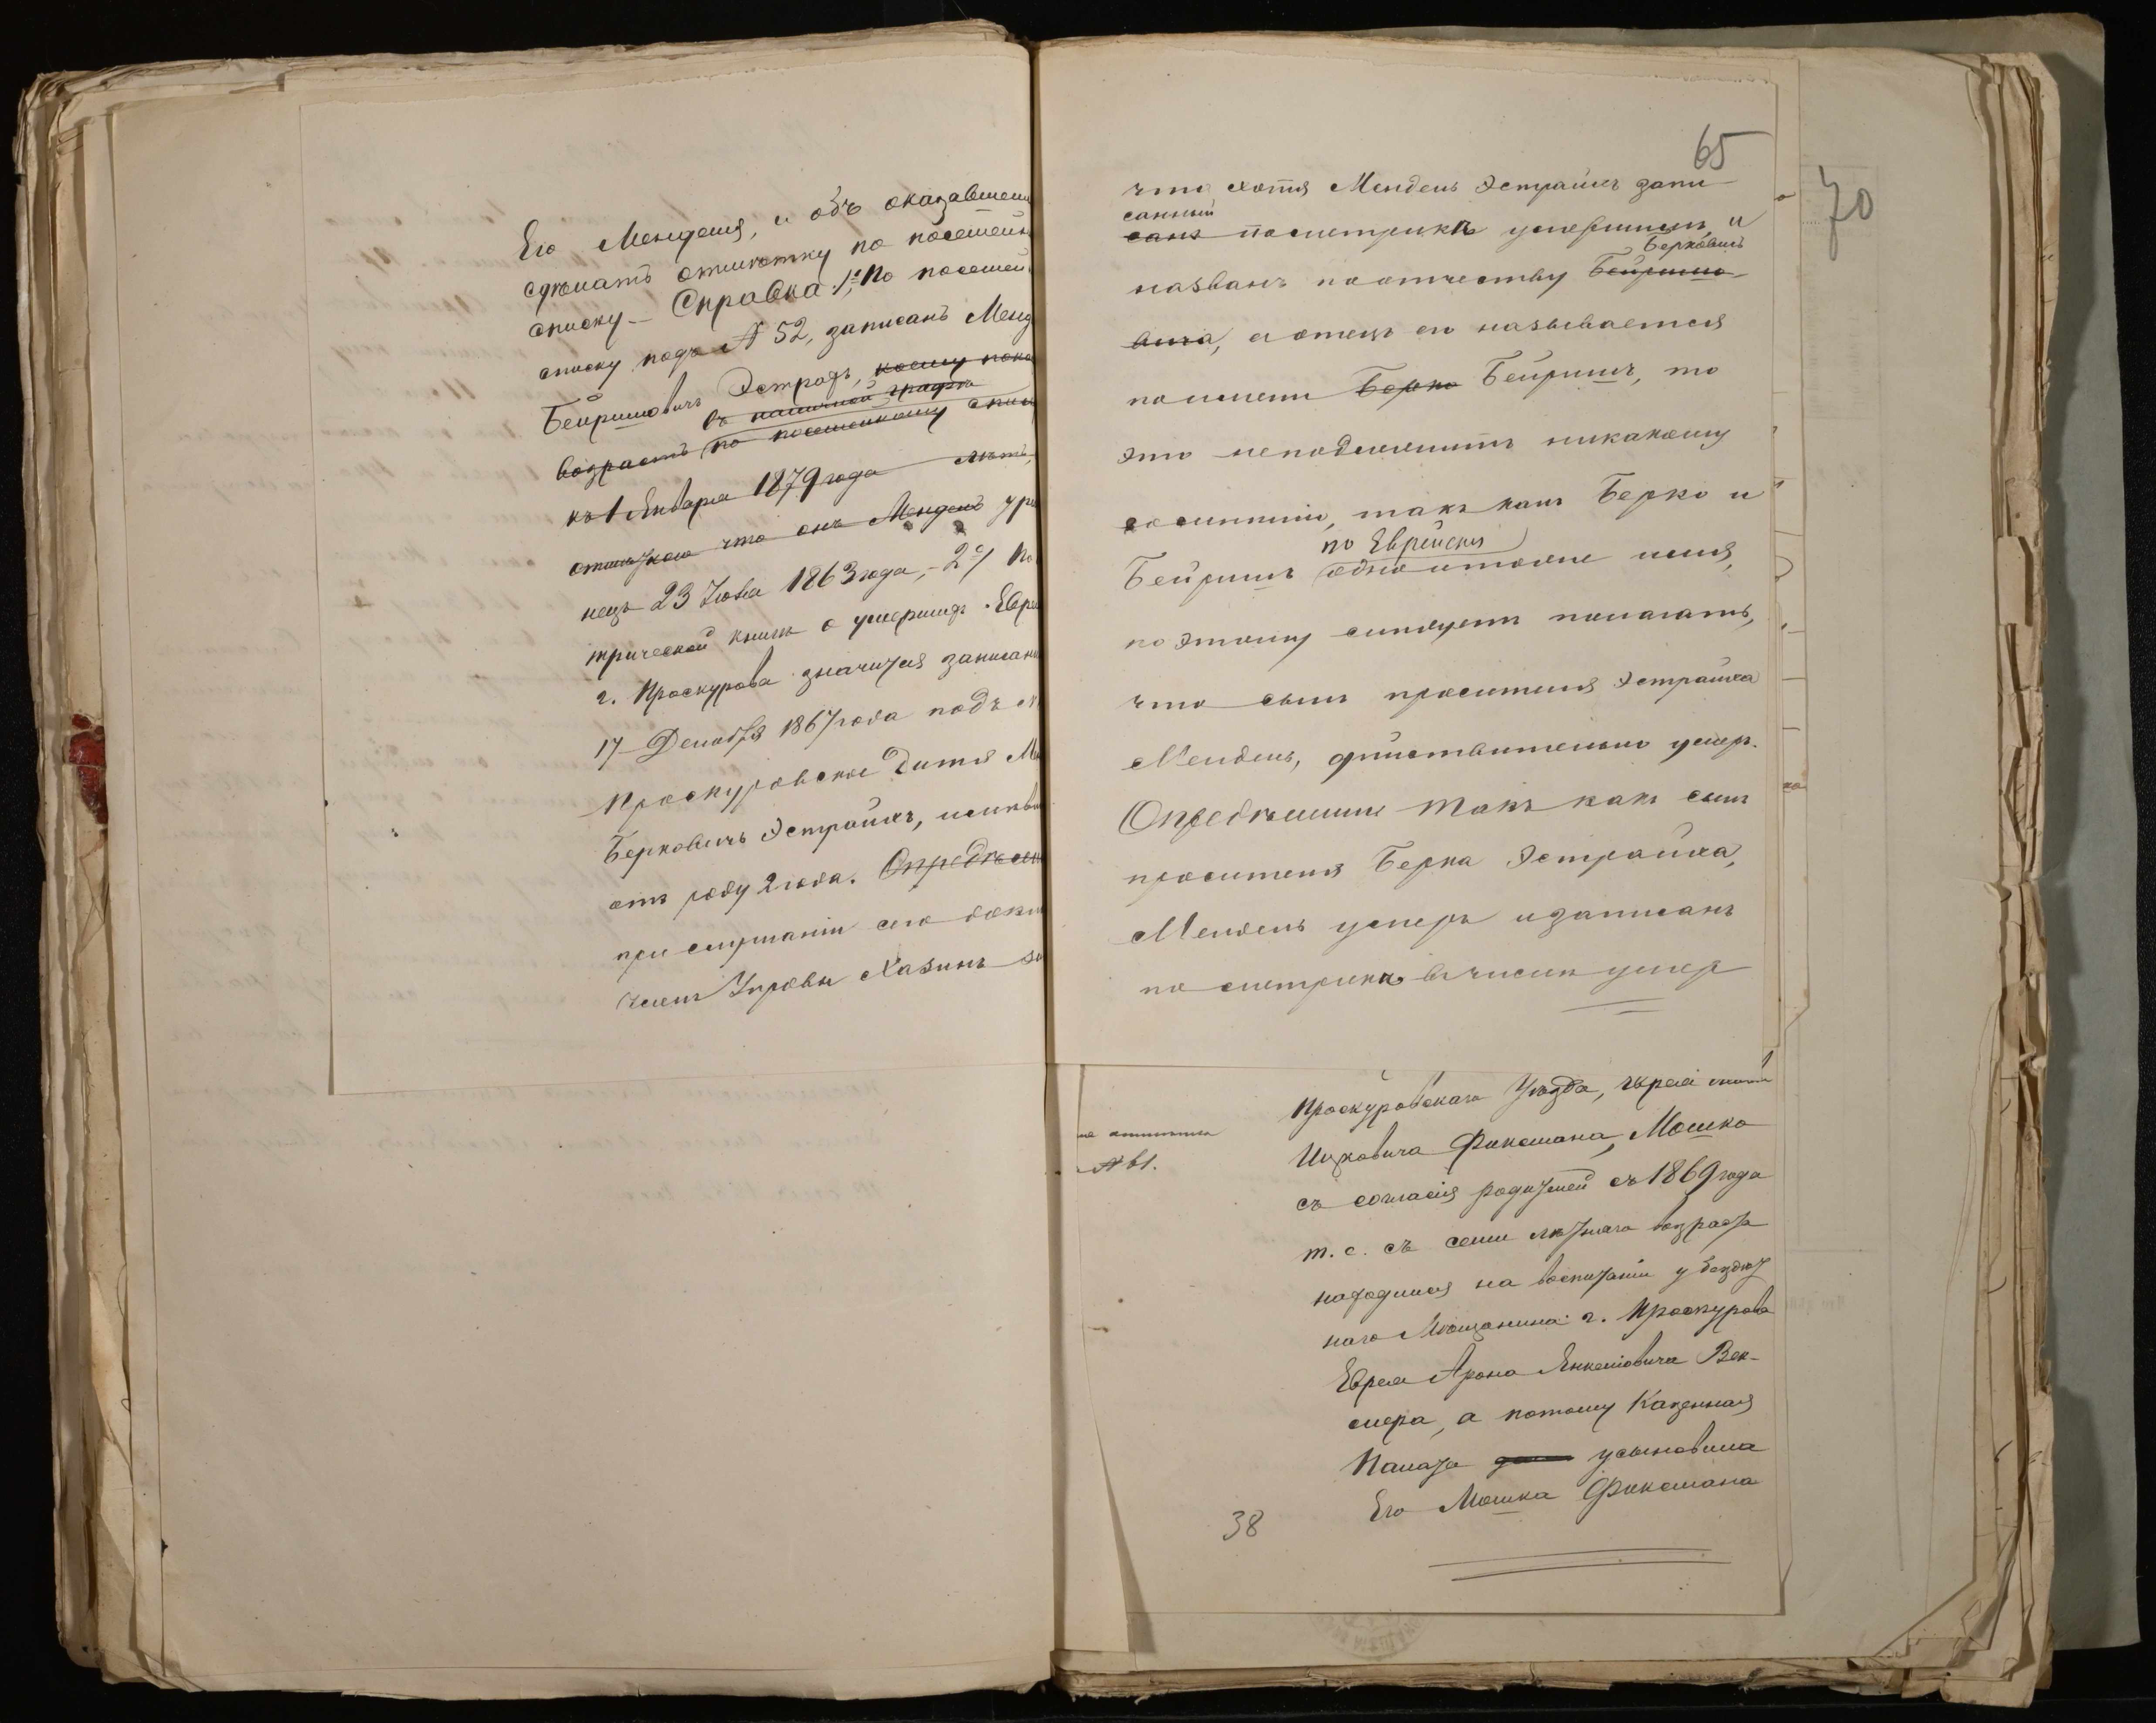 Его Менделя, и объ оказавшем
сдѣлать отмѣтку по посемейн
списку — Справка: 1е, По посемей
списку подъ № 52, записанъ Менд
Бейришовичъ Эстрахъ, коему пока
въ наличной графѣ
возрастъ по посемейному спис
къ 1 Января 1879 года лѣтъ,
что онъ Мендель
нецъ 23 Іюня 1863 года, — 2е/ По
трической книгѣ о умершихъ Евре
г. Проскурова значится записан
17 Декабря 1867 года подъ №
Проскуровское дитя Ме
Берковичъ Эстрайхъ, имѣвш
отъ роду 2 года. Опредѣлен
при слушаніи сего докл
Членъ Управы Хазинъ за
65
70
что хотя Мендель Эстрайхъ запи
санный
санъ по метрикѣ умершимъ, и
Берковичъ
названъ по отчеству Бейришо
вича, а отецъ его называется
по имени Берко Бейришъ, то
это неподлежитъ никакому
сомнѣнію, такъ какъ Берко и
по Еврейски
Бейришъ одно и тоже имя,
по этому слѣдуетъ полагать,
что сынъ просителя Эстрайха
Мендель, дѣйствительно умеръ.
Опредѣлили Такъ какъ сынъ
просителя Берка Эстрайха,
Мендель умеръ и записанъ
по метрикѣ въ числѣ умер
Проскуровскаго Уѣзда, Еврея
Ицковича Фиксмана, Мошко
съ согласія родителей съ 1869 года
т. е. съ семи лѣтняго возраста
находился на воспитаніи у бездѣт
наго Мѣщанина г. Проскурова
Еврея Арона Янкелевича Век-
слера, а потому Казенная
Палата усыновила
Его Мошка Фиксмана
№ 61.
38